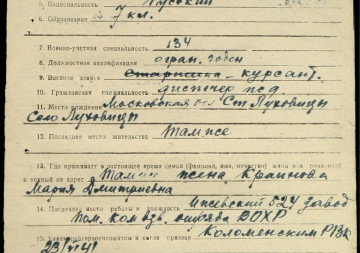 5. Национальность Русский
6. Образование 7 кл.
7. Военно-учетная специальность 134
8. Должностная квалификация огран. годен
9. Военное звание старшина - курсант.
10. Гражданская специальность диспетчер
11. Место рождения Московская обл Ст. Луховицы
Село Луховицы
12. Последнее место жительства Там же
13. Где проживает в настоящее время семья (фамилия, имя, отчество) жены или родителей
и точный их адрес Там же жена Краинова
Мария Дмитриевна
14. Последнее место работы и должность Ижевский 524 завод
Пом. ком взв. отряда ВОХР
15. Каким и когда призван Коломенским РВК